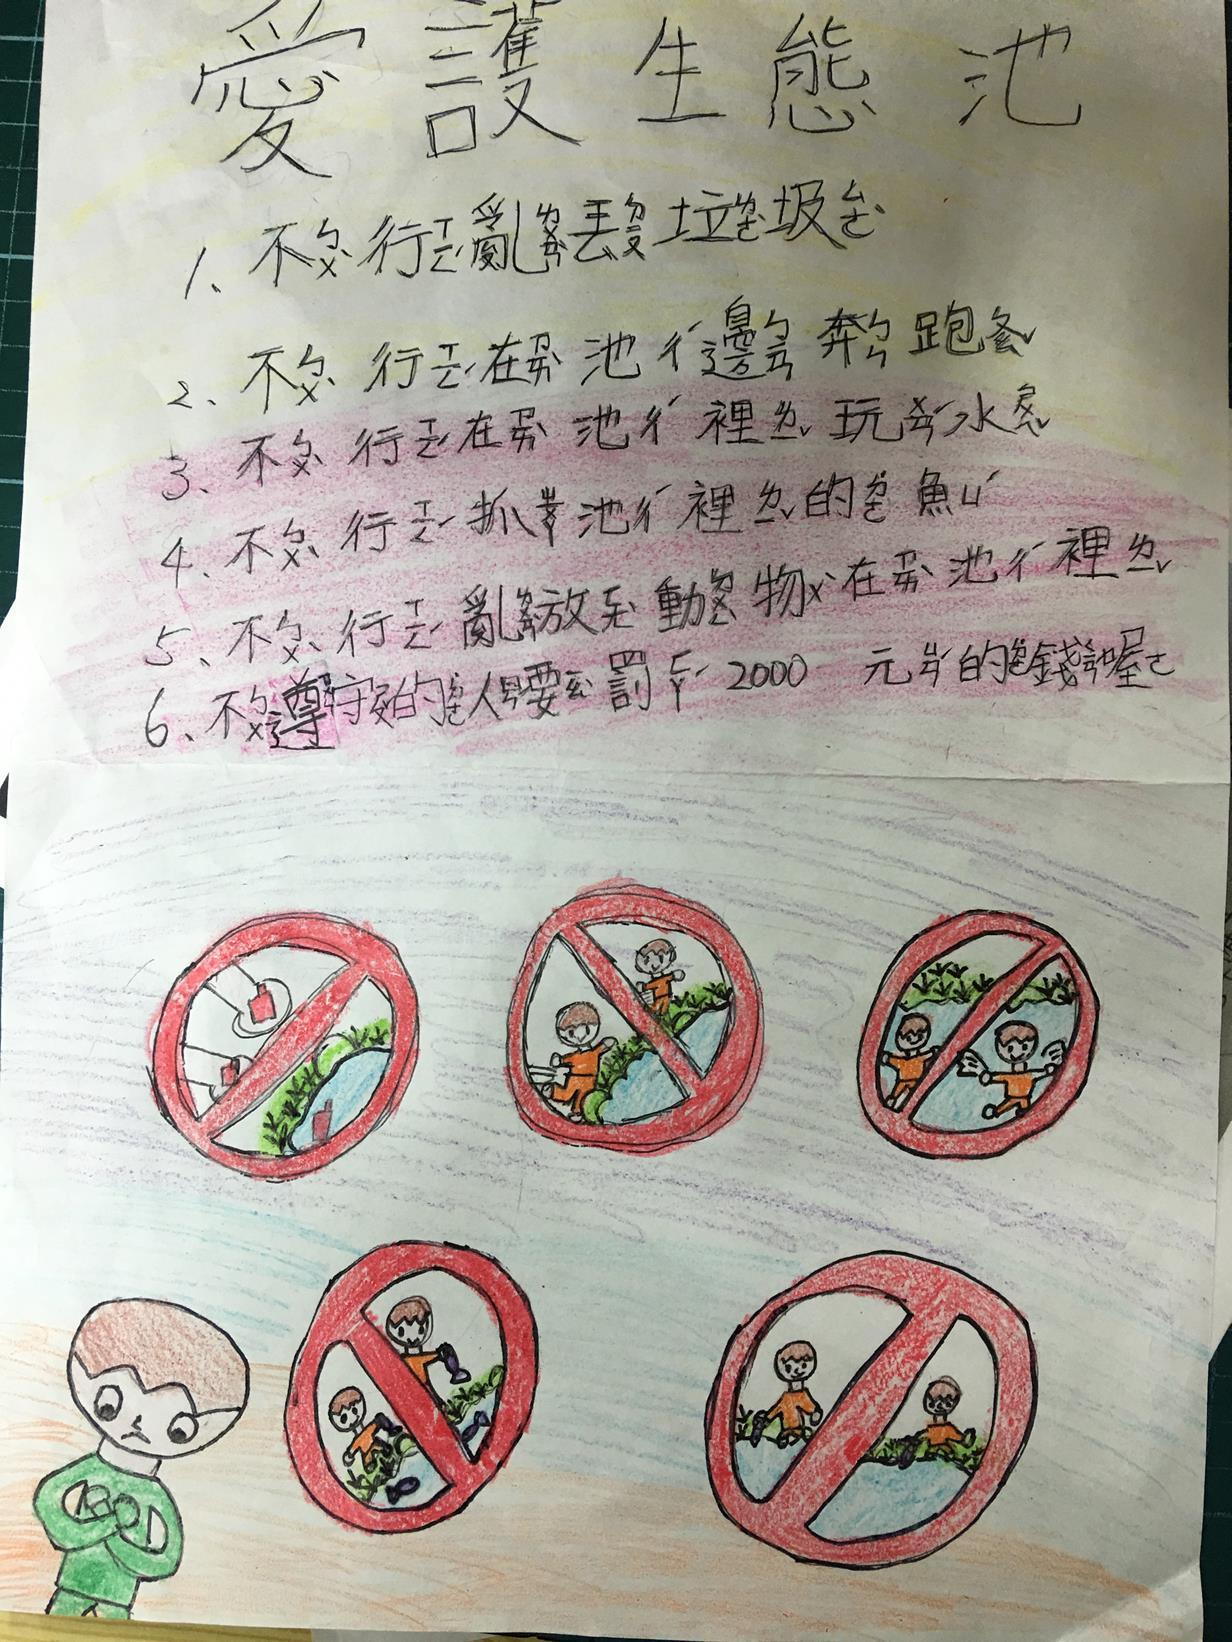 愛護生態池
1、不行亂丟垃圾
2、不行在池邊奔跑
3、不行在池裡玩水
4、不行抓池裡的魚
5、不行亂放動物在池裡
6、不遵守的人要罰2000元的錢喔